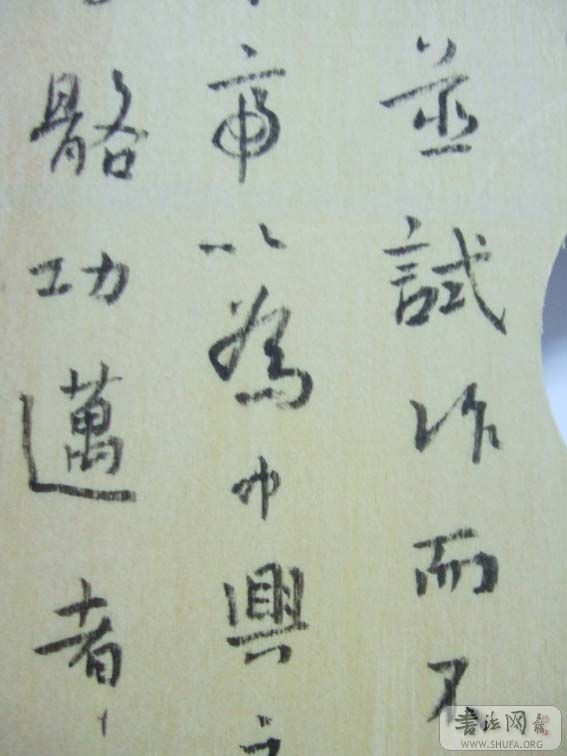 並試作而不
帝以為中興之
骼功邁者
書法网
WWW.SHUFA.ORG